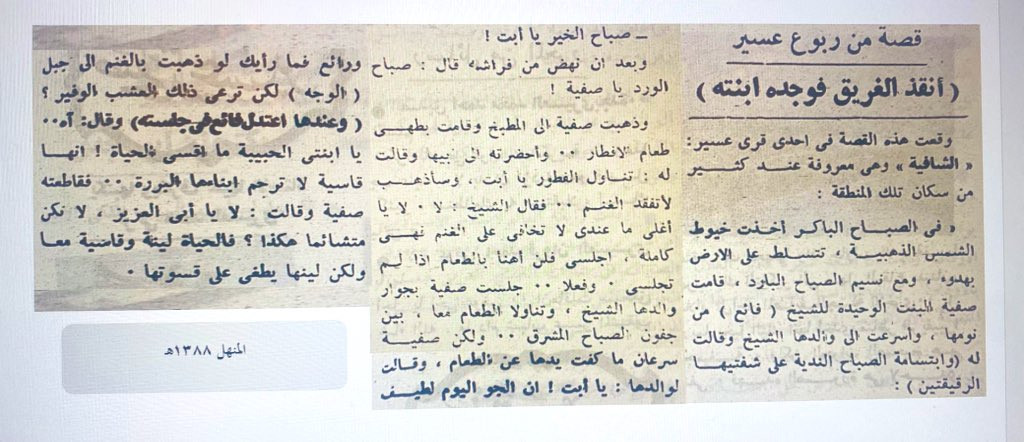 قصة من ربوع عسير
( أنقذ الغريق فوجده ابنته )
وقعت هذه القصة في احدى قرى عسير:
« الشافية » وهى معروفة عند كثير
من سكان تلك المنطقة :
« فى الصباح الباكر أخذت خيوط
الشمس الذهبية ، تتسلط على الارض
بهدوء ، ومع نسيم الصباح البارد ، قامت
صفية البنت الوحيدة للشيخ ( فائع ) من
نومها ، وأسرعت الى والدها الشيخ وقالت
له (وابتسامة الصباح الندية على شفتيها
الرقيقتين ) :
ــ صباح الخير يا أبت !
وبعد ان نهض من فراشه قال : صباح
الورد يا صفية !
وذهبت صفية الى المطبخ وقامت بطهى
طعام الافطار ٠٠ وأحضرته الى ابيها وقالت
له : تناول الفطور يا أبت ، وسأذهب
لأتفقد الغنم ٠٠ فقال الشيخ : لا ٠ لا يا
أغلى ما عندى لا تخافى على الغنم فهى
كاملة ، اجلسى فلن أهنأ بالطعام اذا لم
تجلسى ٠ وفعلا ٠٠ جلست صفية بجوار
والدها الشيخ ، وتناولا الطعام معا ، بين
جفون الصباح المشرق ٠٠ ولكن صفية
سرعان ما كفت يدها عن الطعام ، وقالت
لوالدها : يا أبت ! ان الجو اليوم لطيف
ورائع فما رأيك لو ذهبت بالغنم الى جبل
( الوجه ) لكن ترعى ذلك العشب الوفير ؟
( وعندها اعتدل فائع في جلسته) وقال: آه٠٠
يا ابنتى الحبيبة ما اقسى الحياة ! انها
قاسية لا ترحم ابناءها البررة ٠٠ فقاطعته
صفية وقالت : لا يا أبى العزيز ، لا تكن
متشائما هكذا ؟ فالحياة لينة وقاسية معا
ولكن لينها يطغى على قسوتها ٠
المنهل ١٣٨٨هـ